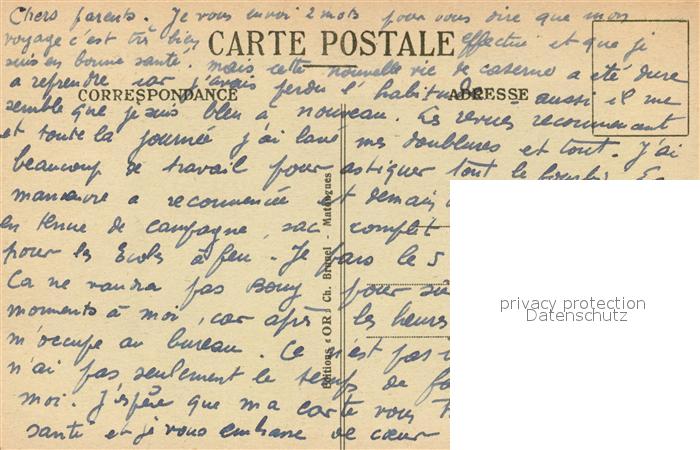 Chers parents. Je vous envoi 2 mots pour vous dire que mon
voyage c'est très bien effectué et que je
CARTE POSTALE
suis en bonne santé, mais cette nouvelle vie de caserne a été dure
a reprendre car j'avais perdu l'habitude aussi il me
CORRESPONDANCE
ADRESSE
semble que je suis bleu à nouveau. Les revues recommencent
et toute la journée j'ai lavé mes doublures et tout. J'ai
beaucoup de travail pour astiquer tout le fourbi.
manœuvre a recommencée et demain
en tenue de campagne, sac complet
pour les Ecoles à feu. Je pars le 5
Ca ne vaudra pas Bouy pour
moments à moi, car après les heures
m'occupe au bureau. Ce n'est pas
n'ai pas seulement le temps de
moi. J'espère que ma carte vous
santé et je vous embrasse de cœur
Editions « OR » Ch. Brunel - Matougues
privacy protection
Datenschutz